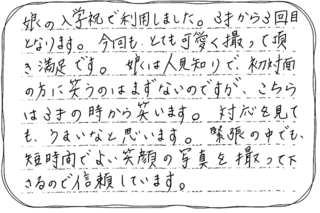 娘の入学祝で利用しました。3才から3回目
となります。今回も、とても可愛く撮って頂
き満足です。娘は人見知りで、初対面
の方に笑うのはまずないのですが、こちら
は3才の時から笑います。対応を見て
も、うまいなと思います。緊張の中でも、
短時間でよい笑顔の写真を撮って下
さるので信頼しています。